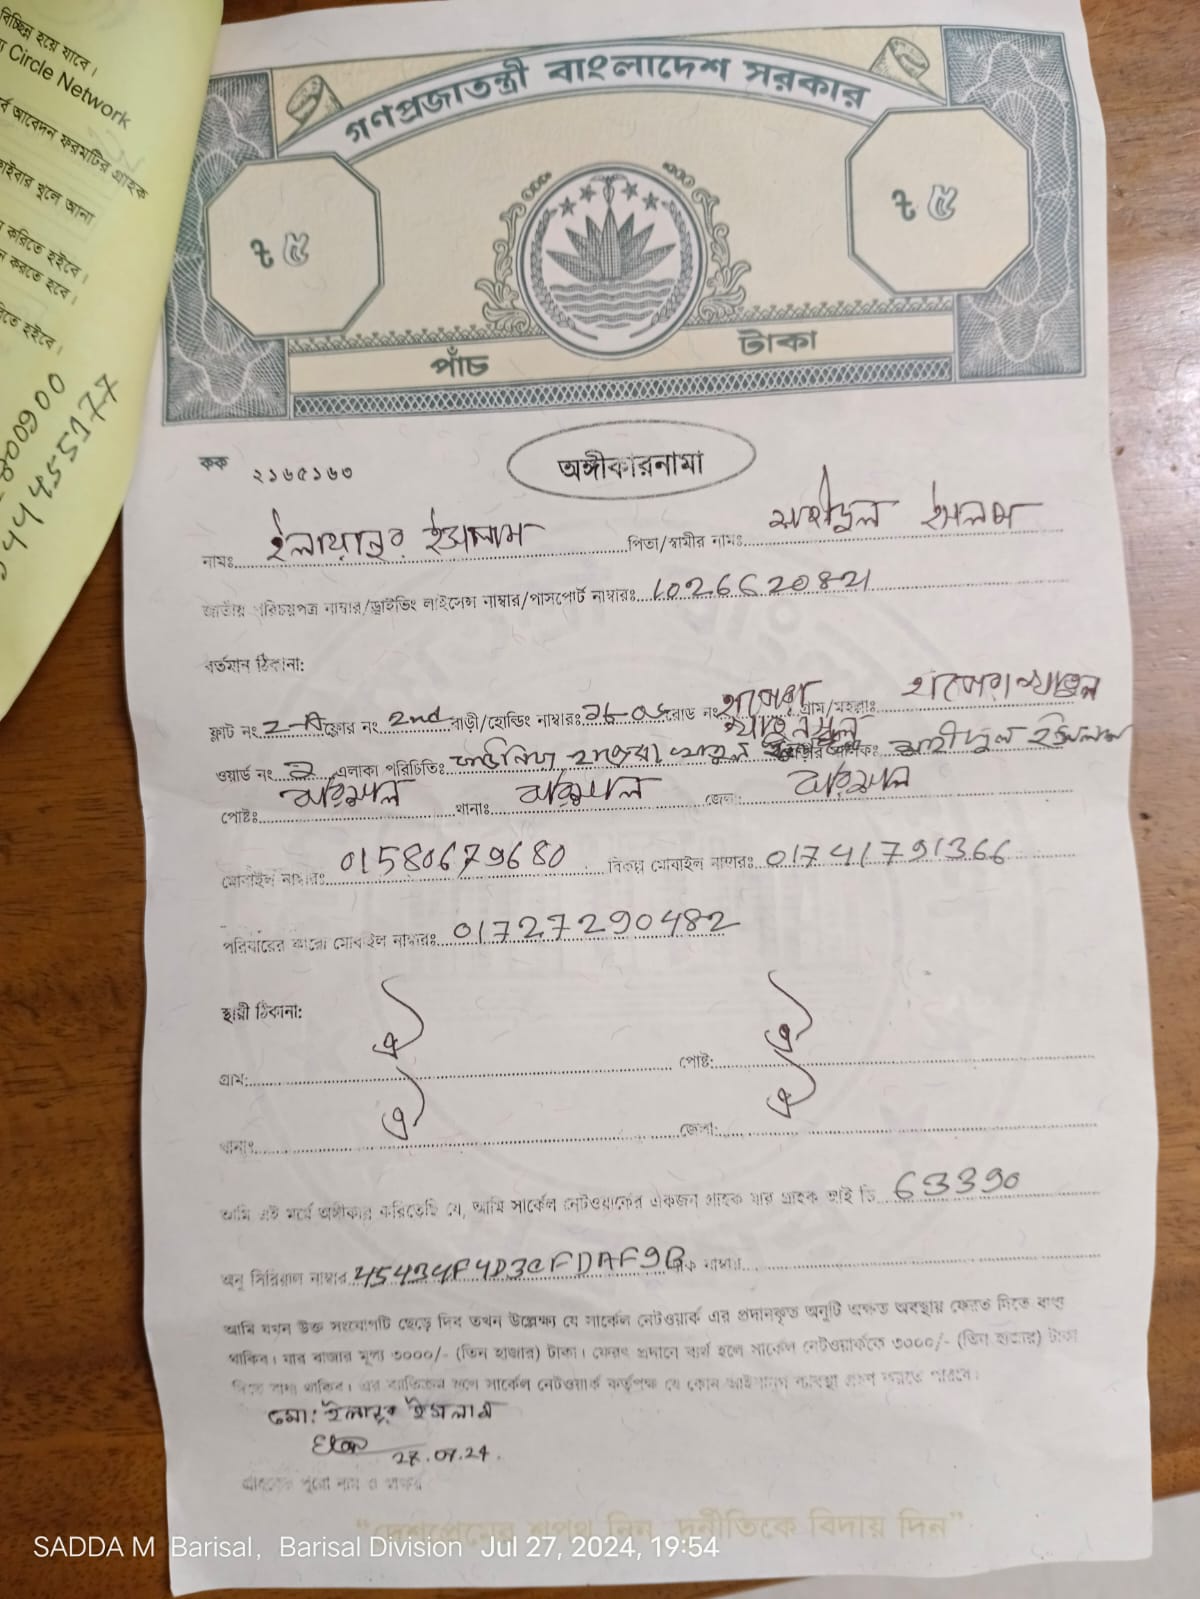 বিচ্ছিন্ন হয়ে যাবে।
Circle Network
আবেদন ফরমটির গ্রাহক
খুলে আনা
করিতে হইবে।
করতে হবে।
হইবে।
গণপ্রজাতন্ত্রী বাংলাদেশ সরকার
৳ ৫
৳ ৫
পাঁচ টাকা
কক ২১৬৫১৬৩
অঙ্গীকারনামা
নামঃ ইসলাম পিতা/স্বামীর নামঃ ইসলাম
জাতীয় পরিচয়পত্র নাম্বার/ড্রাইভিং লাইসেন্স নাম্বার/পাসপোর্ট নাম্বারঃ 1026620821
বর্তমান ঠিকানা:
ফ্লাট নং 2-A ফ্লোর নং 2nd বাড়ী/হোল্ডিং নাম্বারঃ রোড নং গ্রাম/মহল্লাঃ
ওয়ার্ড নং এলাকা পরিচিতিঃ হাজেরা খাতুন ইসলাম
পোষ্টঃ বরিশাল থানাঃ বরিশাল জেলা: বরিশাল
মোবাইল নাম্বারঃ 01580679680 বিকল্প মোবাইল নাম্বারঃ 01741791366
পরিবারের কারো মোবাইল নাম্বারঃ 01727290482
স্থায়ী ঠিকানা:
গ্রাম: ঐ পোষ্ট: ঐ
থানাঃ ঐ জেলা: ঐ
আমি এই মর্মে অঙ্গীকার করিতেছি যে, আমি সার্কেল নেটওয়ার্কের একজন গ্রাহক যার গ্রাহক আই ডি 63390
অনু সিরিয়াল নাম্বার 45434F4D3CFDAF9B নাম্বার
আমি যখন উক্ত সংযোগটি ছেড়ে দিব তখন উল্লেক্ষ্য যে সার্কেল নেটওয়ার্ক এর প্রদানকৃত অনুটি অক্ষত অবস্থায় ফেরত দিতে বাধ্য
থাকিব। যার বাজার মূল্য ৩০০০/- (তিন হাজার) টাকা। ফেরৎ প্রদানে ব্যর্থ হলে সার্কেল নেটওয়ার্ককে ৩০০০/- (তিন হাজার) টাকা
দিতে বাধ্য থাকিব। এর ব্যতিক্রম হলে সার্কেল নেটওয়ার্ক কর্তৃপক্ষ যে কোন আইনানুগ ব্যবস্থা গ্রহণ করতে পারিবে।
মো: ইসলাম
27.07.24.
গ্রাহকের পুরো নাম ও স্বাক্ষর
“দেশপ্রেমের শপথ নিন, দুর্নীতিকে বিদায় দিন”
SADDA M Barisal, Barisal Division Jul 27, 2024, 19:54